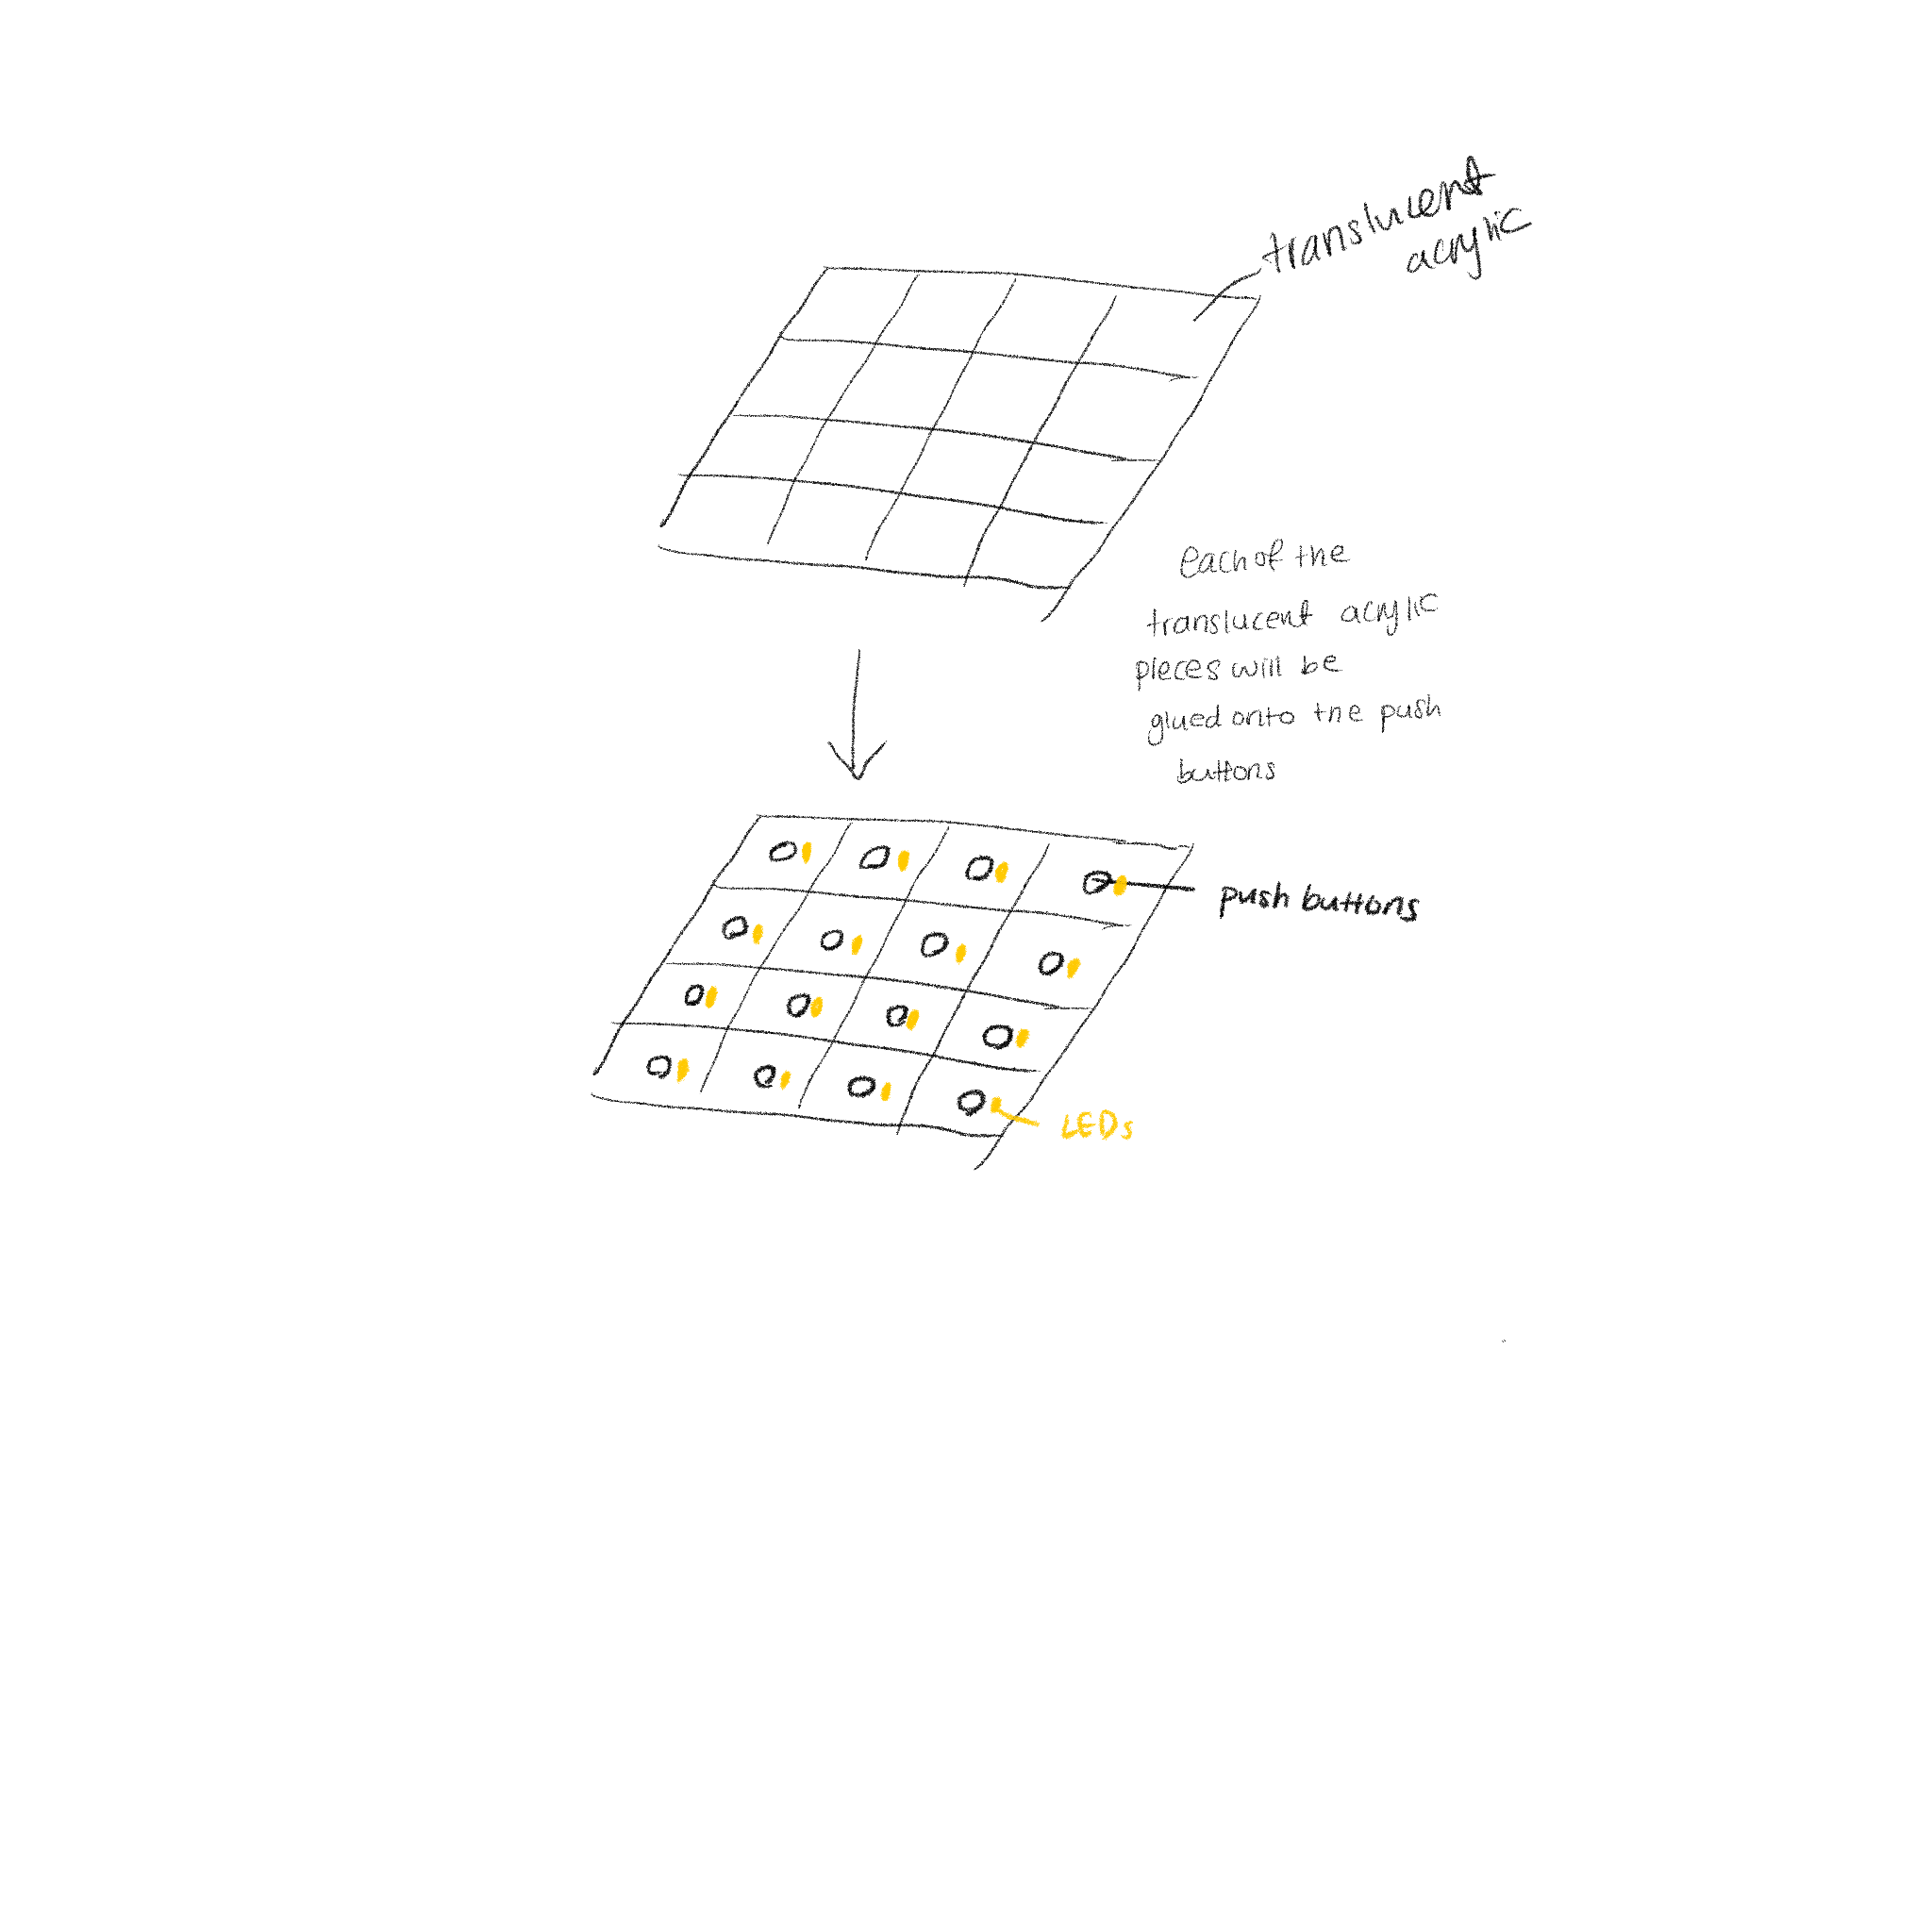 translucent
acrylic
each of the
translucent acrylic
pieces will be
glued onto the push
buttons
push buttons
LEDs